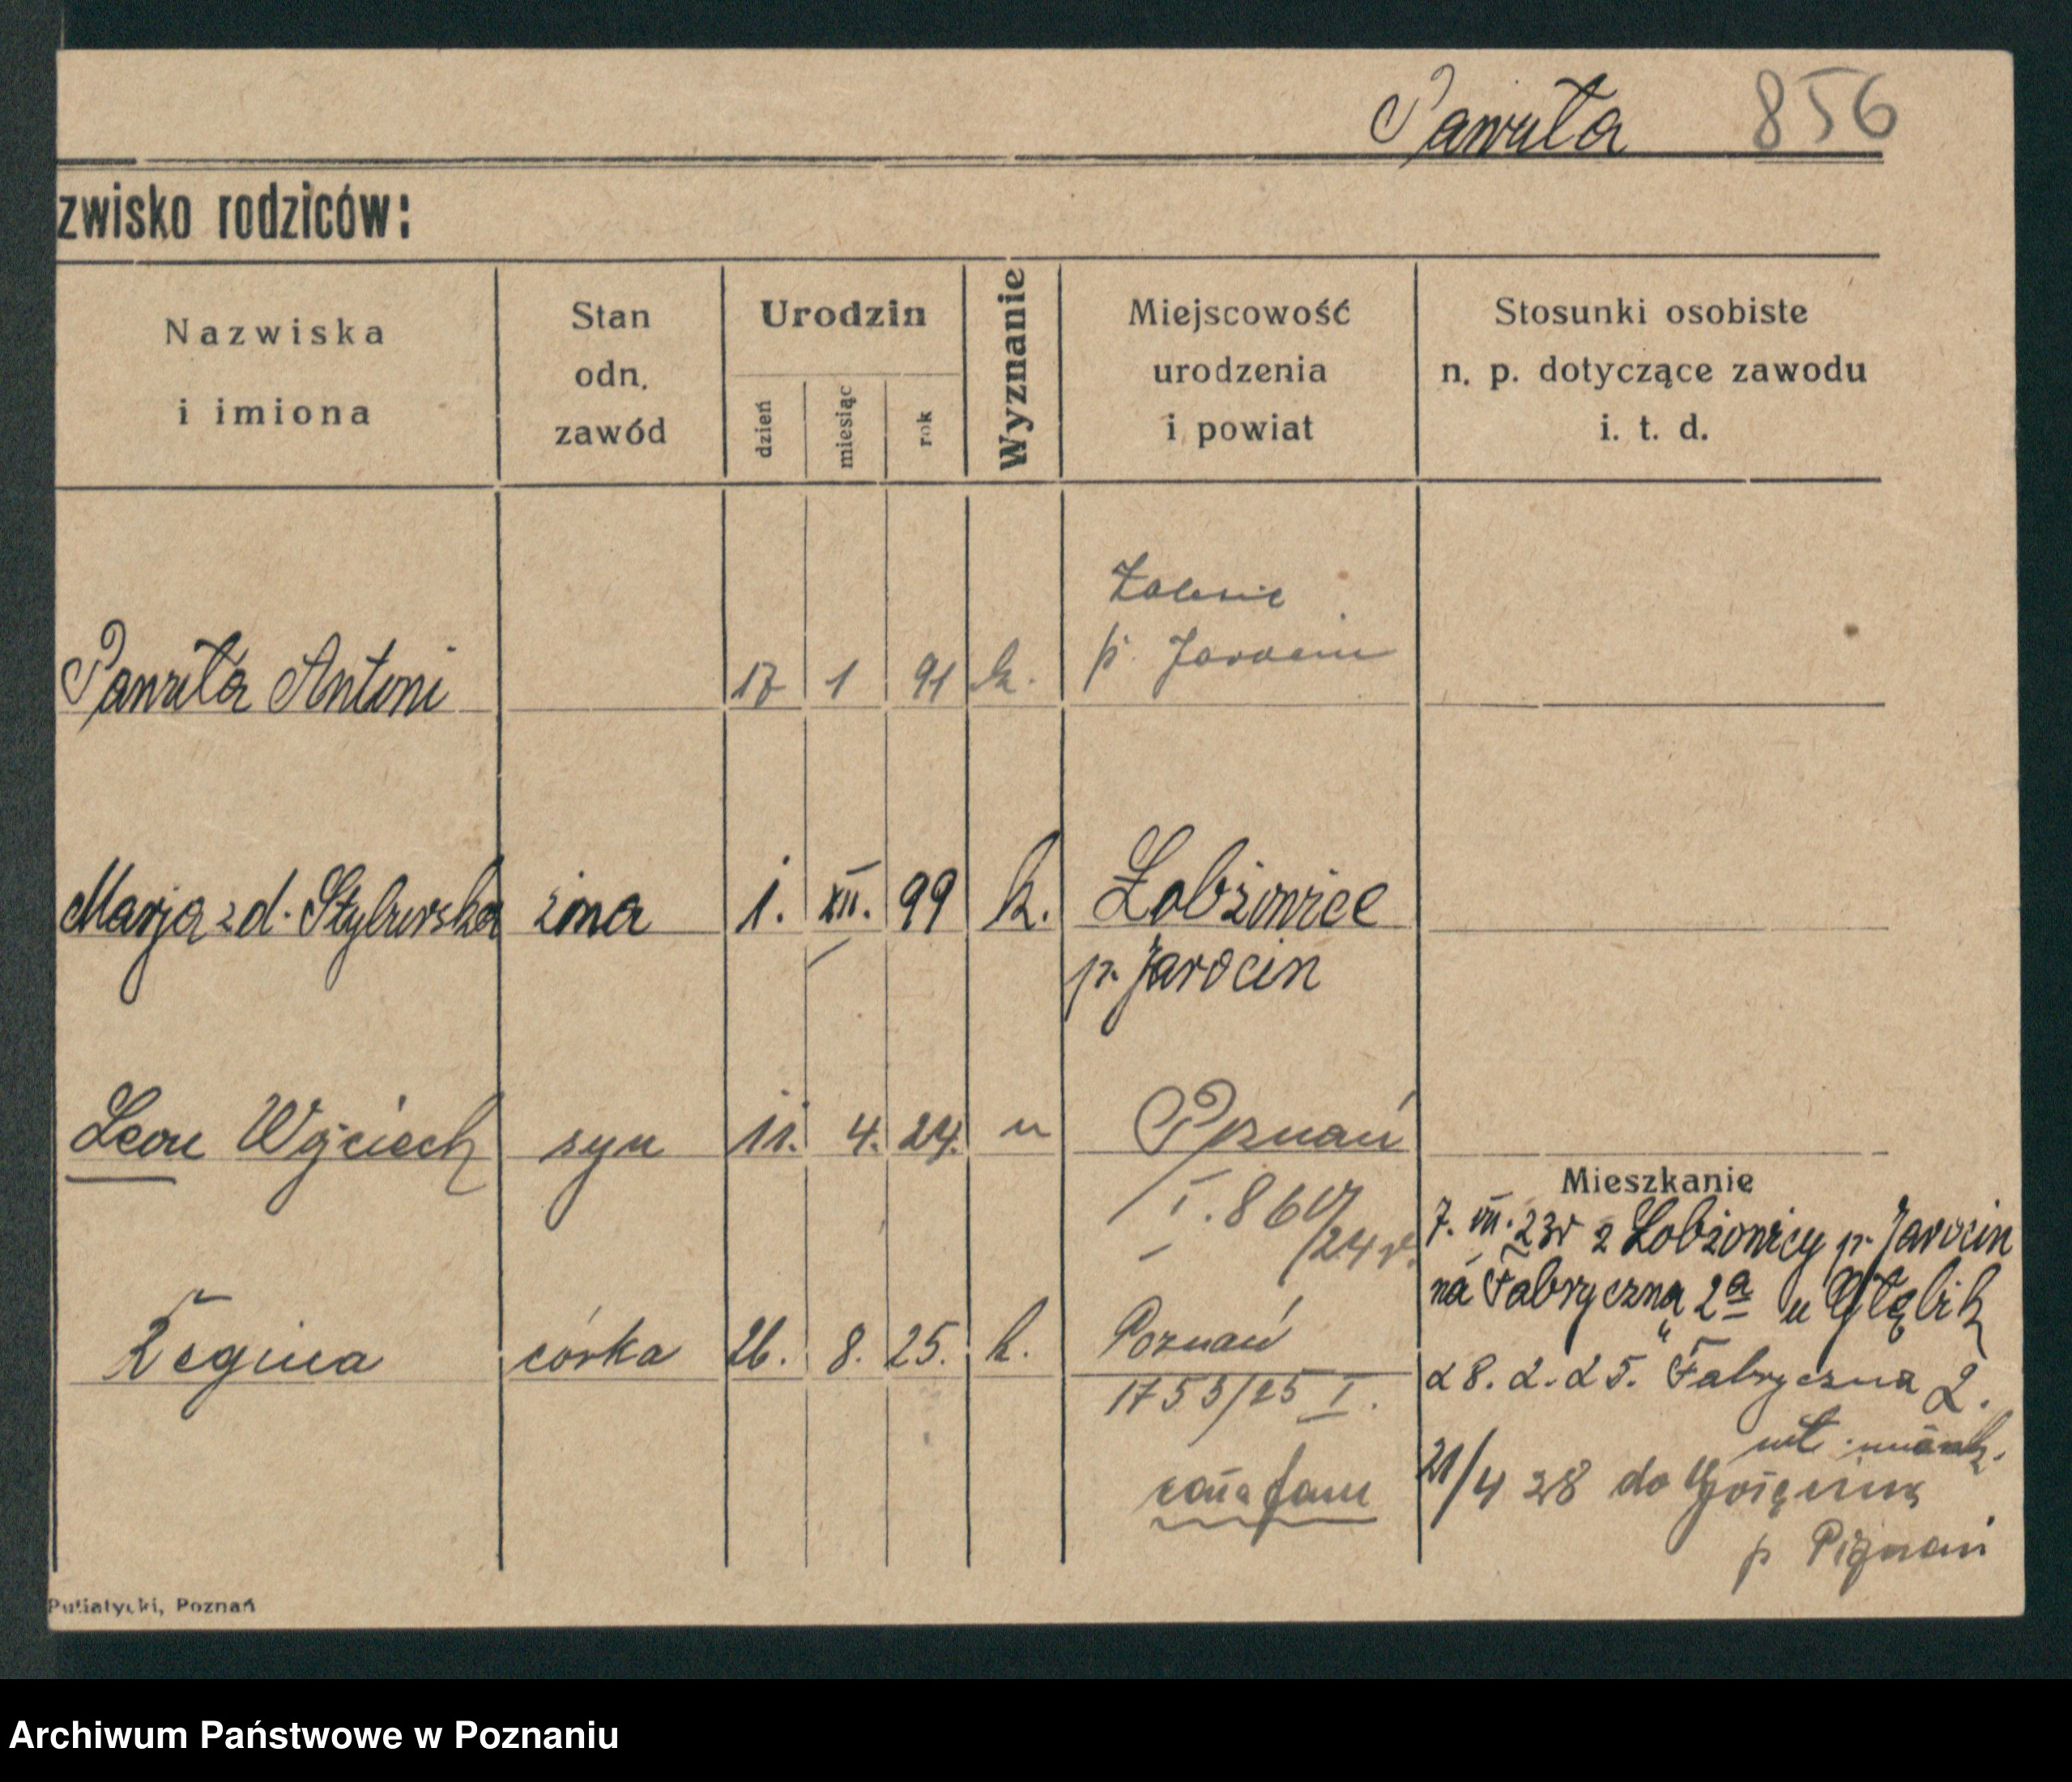 Pawuła 856
zwisko rodziców:
Nazwiska i imiona
Stan odn. zawód
Urodzin
dzień miesiąc rok
Wyznanie
Miejscowość urodzenia i powiat
Stosunki osobiste n. p. dotyczące zawodu i. t. d.
Zalesie
p. Jarocin
Pawuła Antoni 17 1 91 k.
Marja z d. żona 1. XII. 99 k. Łobżowice
p. Jarocin
Leon Wojciech syn 11. 4. 24. Poznań
I. 860/24 r.
Mieszkanie
7. VII. 23r z p. Jarocin
na Fabryczną 2a u
Regina córka 26. 8. 25. k. Poznań
1753/25 I.
28. 2. 25. Fabryczna 2.
21/4 28 do
p Poznań
Putiatycki, Poznań
Archiwum Państwowe w Poznaniu